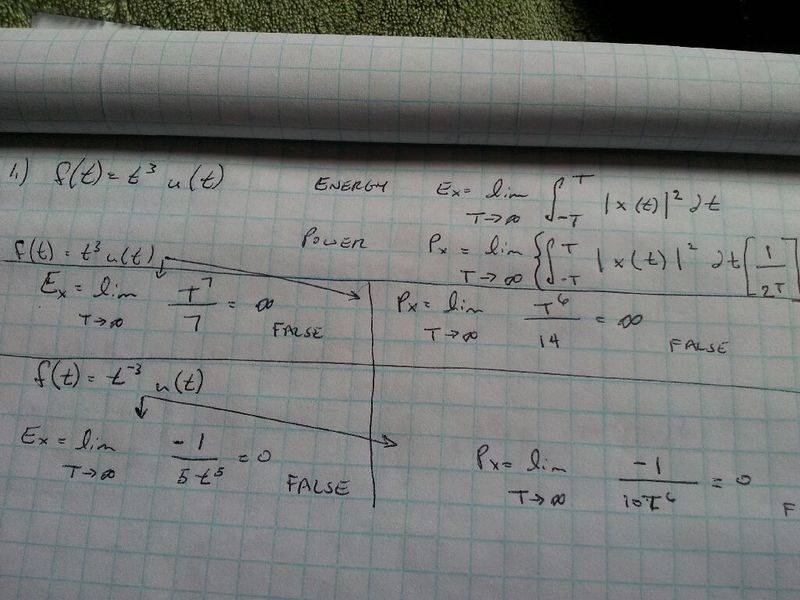 1.) f(t) = t³ u(t) ENERGY Ex = lim T→∞ ∫-T^T |x(t)|² ∂t
POWER Px = lim T→∞ {∫-T^T |x(t)|² ∂t [1/2T]
f(t) = t³ u(t)
Ex = lim T→∞ T⁷/7 = ∞ FALSE
Px = lim T→∞ T⁶/14 = ∞ FALSE
f(t) = t⁻³ u(t)
Ex = lim T→∞ -1/5t⁵ = 0 FALSE
Px = lim T→∞ -1/10T⁶ = 0 F